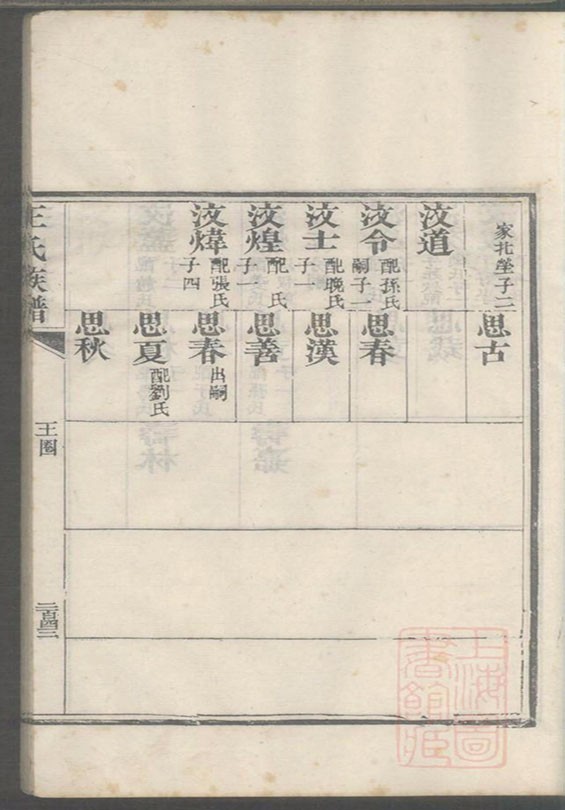 家北塋子二
思古
汶道
汶令
配孫氏
嗣子一
思春
汶士
配晚氏
子一
思漢
汶煌
配 氏
子一
思善
汶煒
配張氏
子四
思春
出嗣
思夏
配劉氏
思秋
王氏族譜
王圈
二百四二
上海圖書館藏